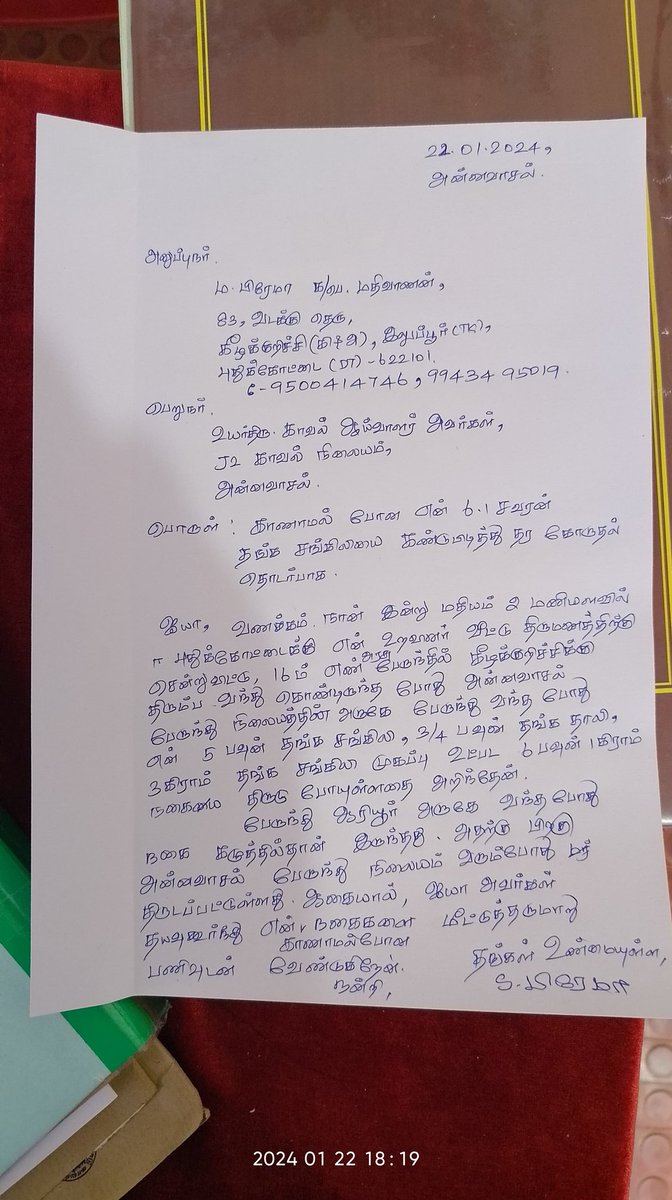 22.01.2024,
அன்னவாசல்.
அனுப்புநர்.
ம. பிரேமா க/பெ. மதிவாணன்,
83, வடக்கு தெரு,
கீழக்குறிச்சி (கி), இலுப்பூர் (TK),
புதுக்கோட்டை (DT) - 622101.
9500414746, 99434 95019.
பெறுநர்.
உயர்திரு. காவல் ஆய்வாளர் அவர்கள்,
J2 காவல் நிலையம்,
அன்னவாசல்.
பொருள் : காணாமல் போன என் 6.1 சவரன்
தங்க சங்கிலியை கண்டுபிடித்து தர கோருதல்
தொடர்பாக.
ஐயா, வணக்கம். நான் இன்று மதியம் 2 மணியளவில்
புதுக்கோட்டைக்கு என் உறவினர் வீட்டு திருமணத்திற்கு
சென்றுவிட்டு, 16ம் எண் அரசு பேருந்தில் கீழக்குறிச்சிக்கு
திரும்ப வந்து கொண்டிருந்த போது அன்னவாசல்
பேருந்து நிலையத்தின் அருகே பேருந்து வந்த போது
என் 5 பவுன் தங்க சங்கிலி, 3/4 பவுன் தங்க தாலி,
3கிராம் தங்க சங்கிலி முகப்பு உட்பட 6 பவுன் 1கிராம்
நகையை திருடு போயுள்ளதை அறிந்தேன்.
பேருந்து ஆரியூர் அருகே வந்தபோது
நகை கழுத்தில்தான் இருந்தது. அதற்கு பிறகு
அன்னவாசல் பேருந்து நிலையம் வரும்போது
திருடப்பட்டுள்ளது. ஆகையால், ஐயா அவர்கள்
தயவுகூர்ந்து என் காணாமல்போன நகைகளை மீட்டுத்தருமாறு
பணிவுடன் வேண்டுகிறேன்.
நன்றி,
தங்கள் உண்மையுள்ள,
S. பிரேமா
2024 01 22 18:19